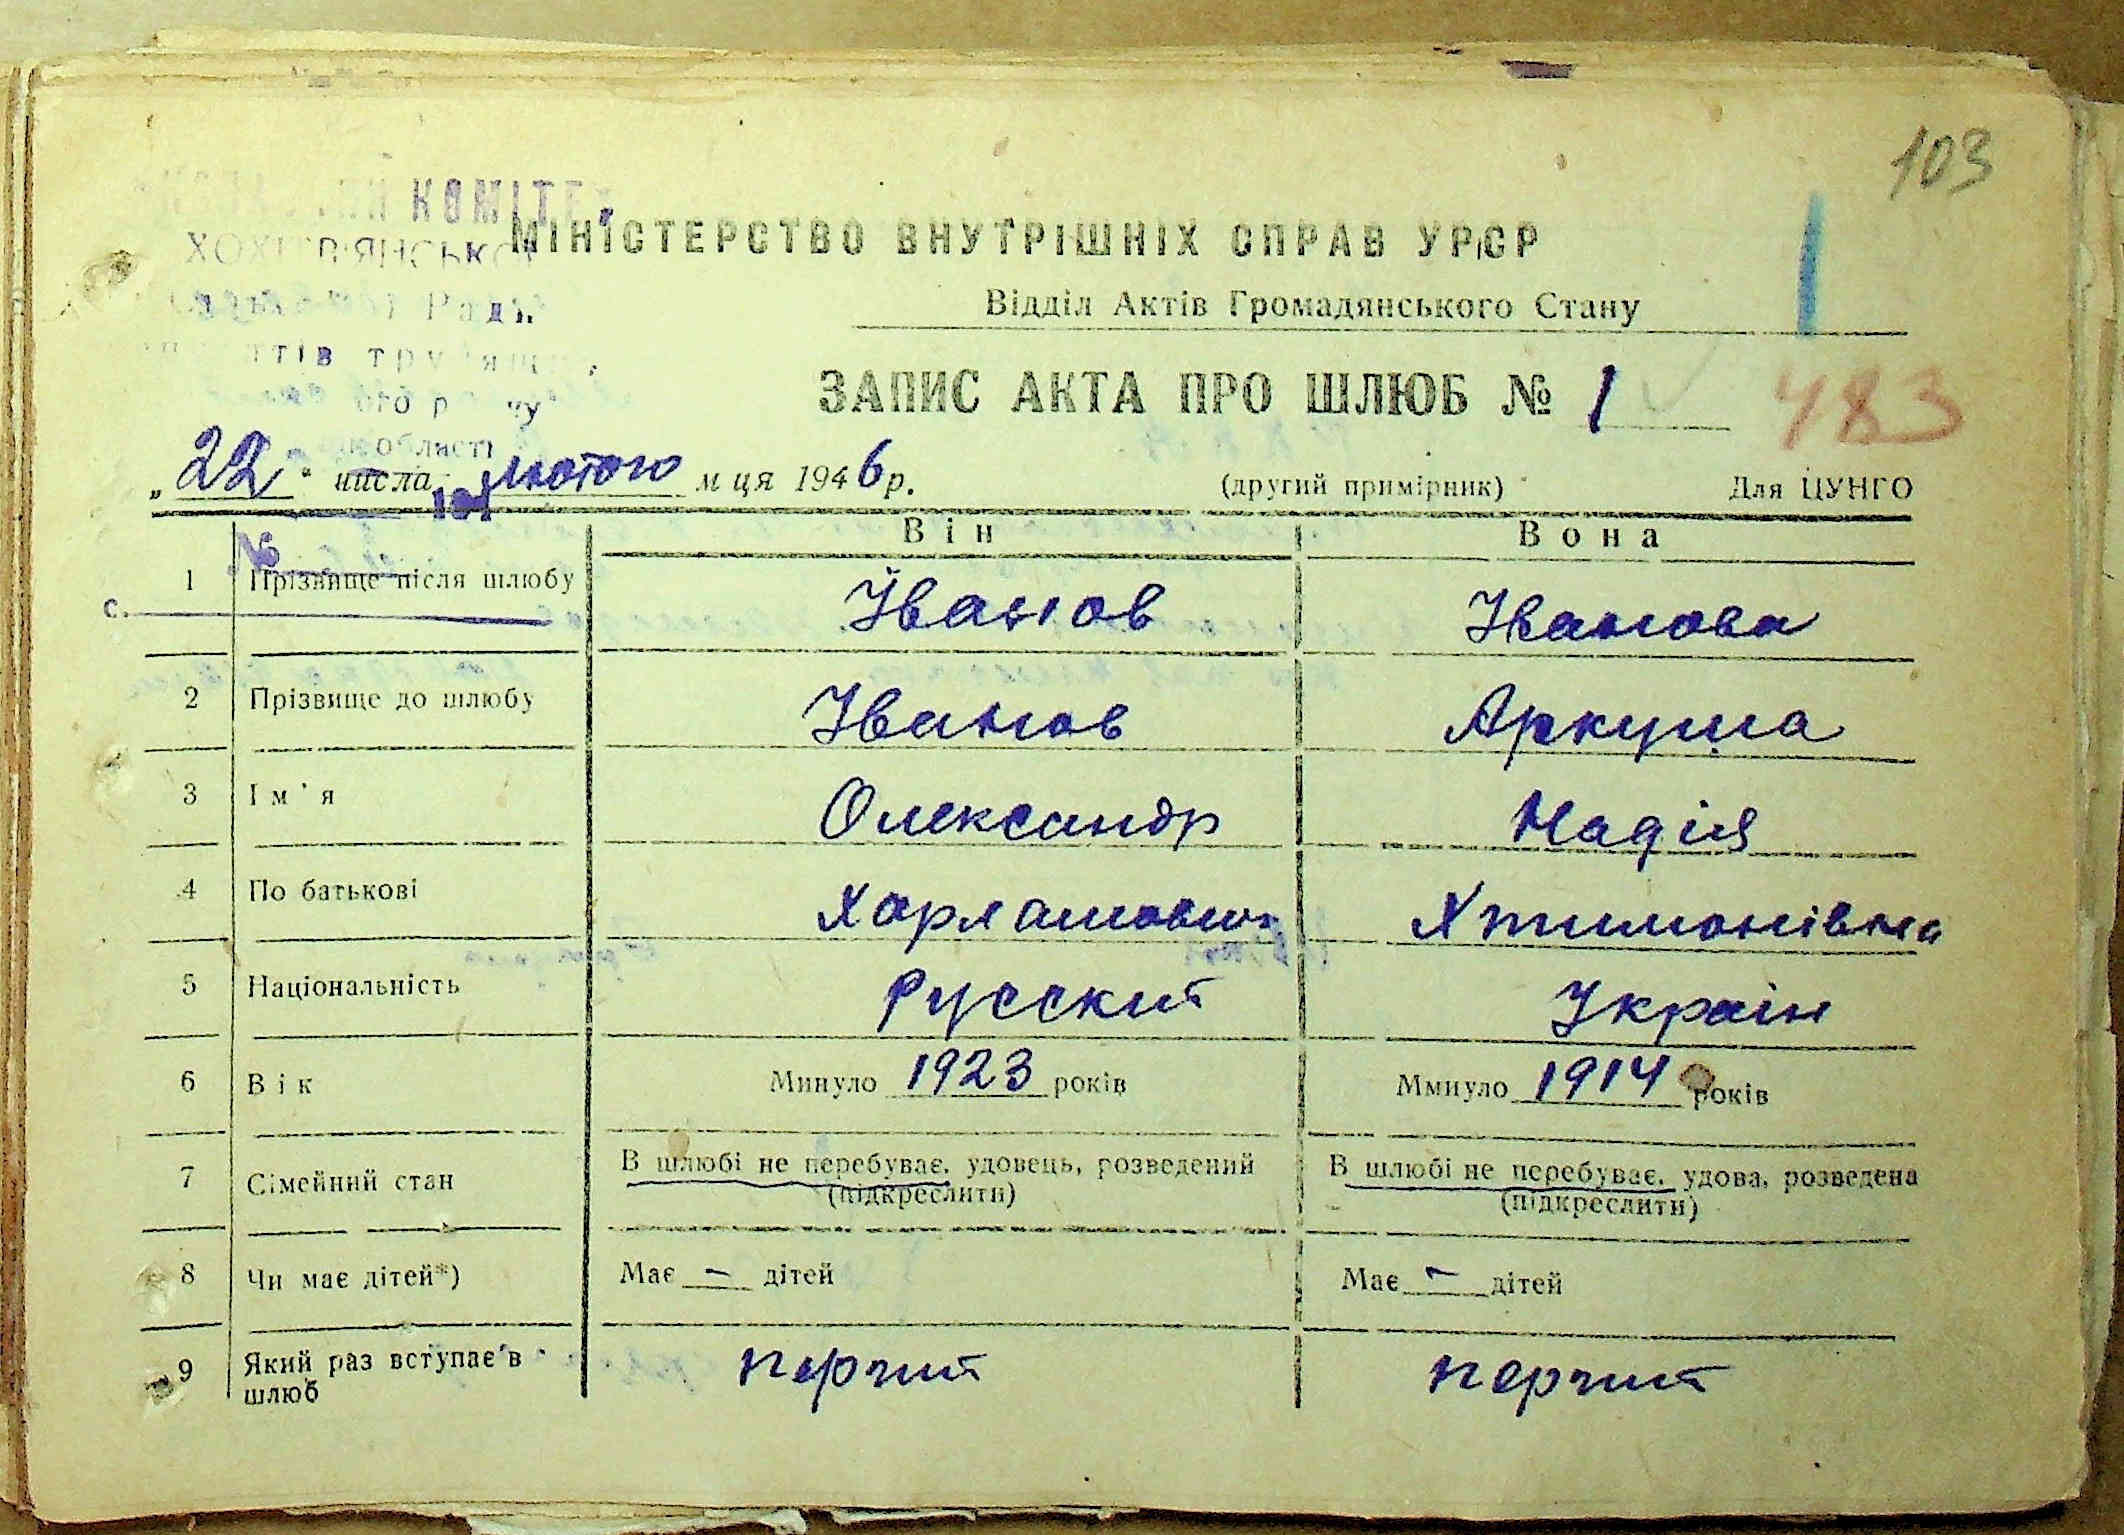 103
КОМІТЕТ
МІНІСТЕРСТВО ВНУТРІШНІХ СПРАВ УРСР
Відділ Актів Громадянського Стану
Ради
ЗАПИС АКТА ПРО ШЛЮБ № 1 483
області
„22" числа лютого м ця 1946 р. (другий примірник) Для ЦУНГО
№
Він Вона
1 Прізвище після шлюбу Іванов Іванова
с.
2 Прізвище до шлюбу Іванов Аркуша
3 Ім'я Олександр Надія
4 По батькові Харламович Хтимонівна
5 Національність Русский Україн
6 Вік Минуло 1923 років Ммнуло 1914 років
7 Сімейний стан В шлюбі не перебуває, удовець, розведений (підкреслити) В шлюбі не перебуває, удова, розведена (підкреслити)
8 Чи має дітей*) Має – дітей Має – дітей
9 Який раз вступає в шлюб перший перший